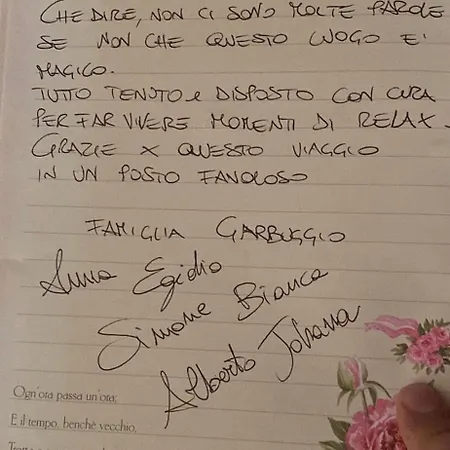 CHE DIRE, NON CI SONO MOLTE PAROLE
SE NON CHE QUESTO LUOGO E'
MAGICO.
TUTTO TENUTO e DISPOSTO CON CURA
PER FAR VIVERE MOMENTI DI RELAX.
GRAZIE X QUESTO VIAGGIO
IN UN POSTO FAVOLOSO
FAMIGLIA GARBUGGIO
Anna Egidio
Simone Bianca
Alberto Johana
Ogn'ora passa un'ora;
E il tempo, benchè vecchio,